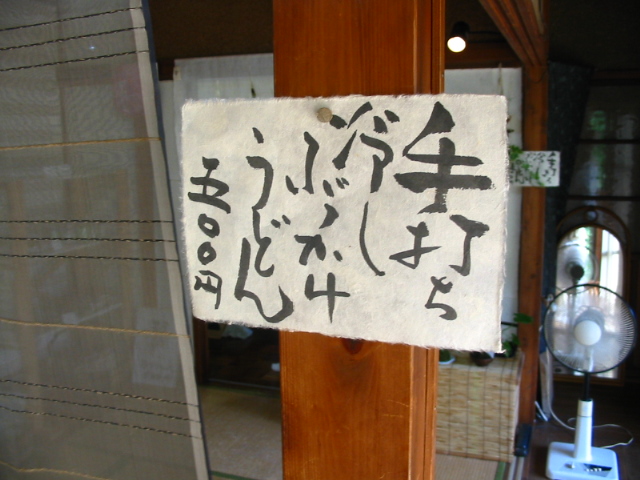 手打ち
冷し
ぶっかけ
うどん
五〇〇円